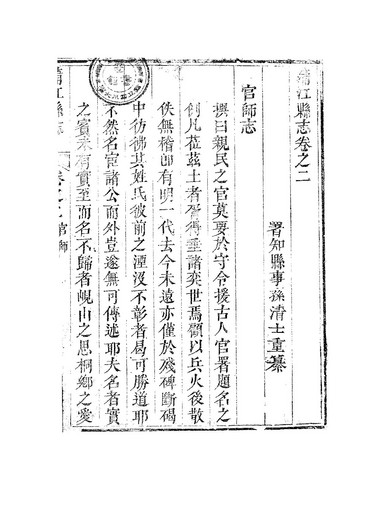 蒲江縣志卷之二
署知縣事孫清士重纂
官師志
撰曰親民之官莫要於守令援古人官署題名之
例凡莅茲土者胥得垂諸奕世焉顧以兵火後散
佚無稽卽有明一代去今未遠亦僅於殘碑斷碣
中彷彿其姓氏彼前之湮沒不彰者曷可勝道耶
不然名宦諸公而外豈遂無可傳述耶夫名者實
之賓未有實至而名不歸者峴山之思桐鄉之愛
蒲江縣志
卷之二 官師